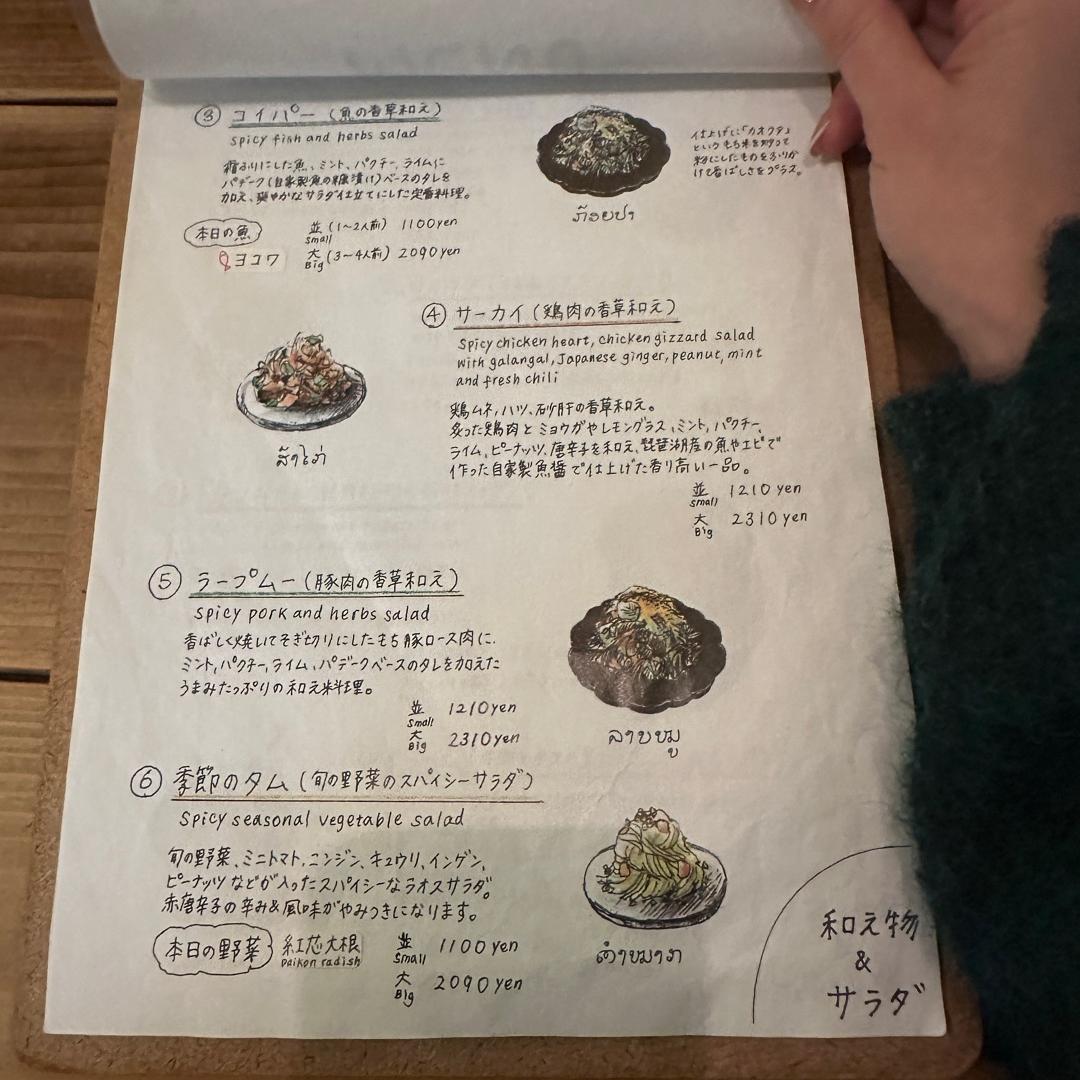 ③ コイパー (魚の香草和え)
spicy fish and herbs salad
霜ふりにした魚、ミント、パクチー、ライムに
パデーク(自家製魚の糠漬け)ベースのタレを
加え、爽やかなサラダ仕立てにした定番料理。
仕上げに「カオクア」
というもち米を炒って
粉にしたものをふりか
けて香ばしさをプラス。
ກ້ອຍປາ
本日の魚
ヨコワ
並 (1〜2人前) 1100yen
small
大 (3〜4人前) 2090yen
Big
④ サーカイ (鶏肉の香草和え)
spicy chicken heart, chicken gizzard salad
with galangal, Japanese ginger, peanut, mint
and fresh chili
鶏ムネ、ハツ、砂肝の香草和え。
炙った鶏肉とミョウガやレモングラス、ミント、パクチー、
ライム、ピーナッツ、唐辛子を和え、琵琶湖産の魚やエビで
作った自家製魚醤で仕上げた香り高い一品。
ສ້າໄກ່
並 1210 yen
small
大 2310 yen
Big
⑤ ラープムー (豚肉の香草和え)
spicy pork and herbs salad
香ばしく焼いてそぎ切りにしたもち豚ロース肉に、
ミント、パクチー、ライム、パデークベースのタレを加えた
うまみたっぷりの和え料理。
並 1210yen
small
大 2310yen
Big
ລາບໝູ
⑥ 季節のタム (旬の野菜のスパイシーサラダ)
spicy seasonal vegetable salad
旬の野菜、ミニトマト、ニンジン、キュウリ、インゲン、
ピーナッツなどが入ったスパイシーなラオスサラダ。
赤唐辛子の辛み&風味がやみつきになります。
本日の野菜
紅芯大根
Daikon radish
並 1100 yen
small
大 2090 yen
Big
和え物
&
サラダ